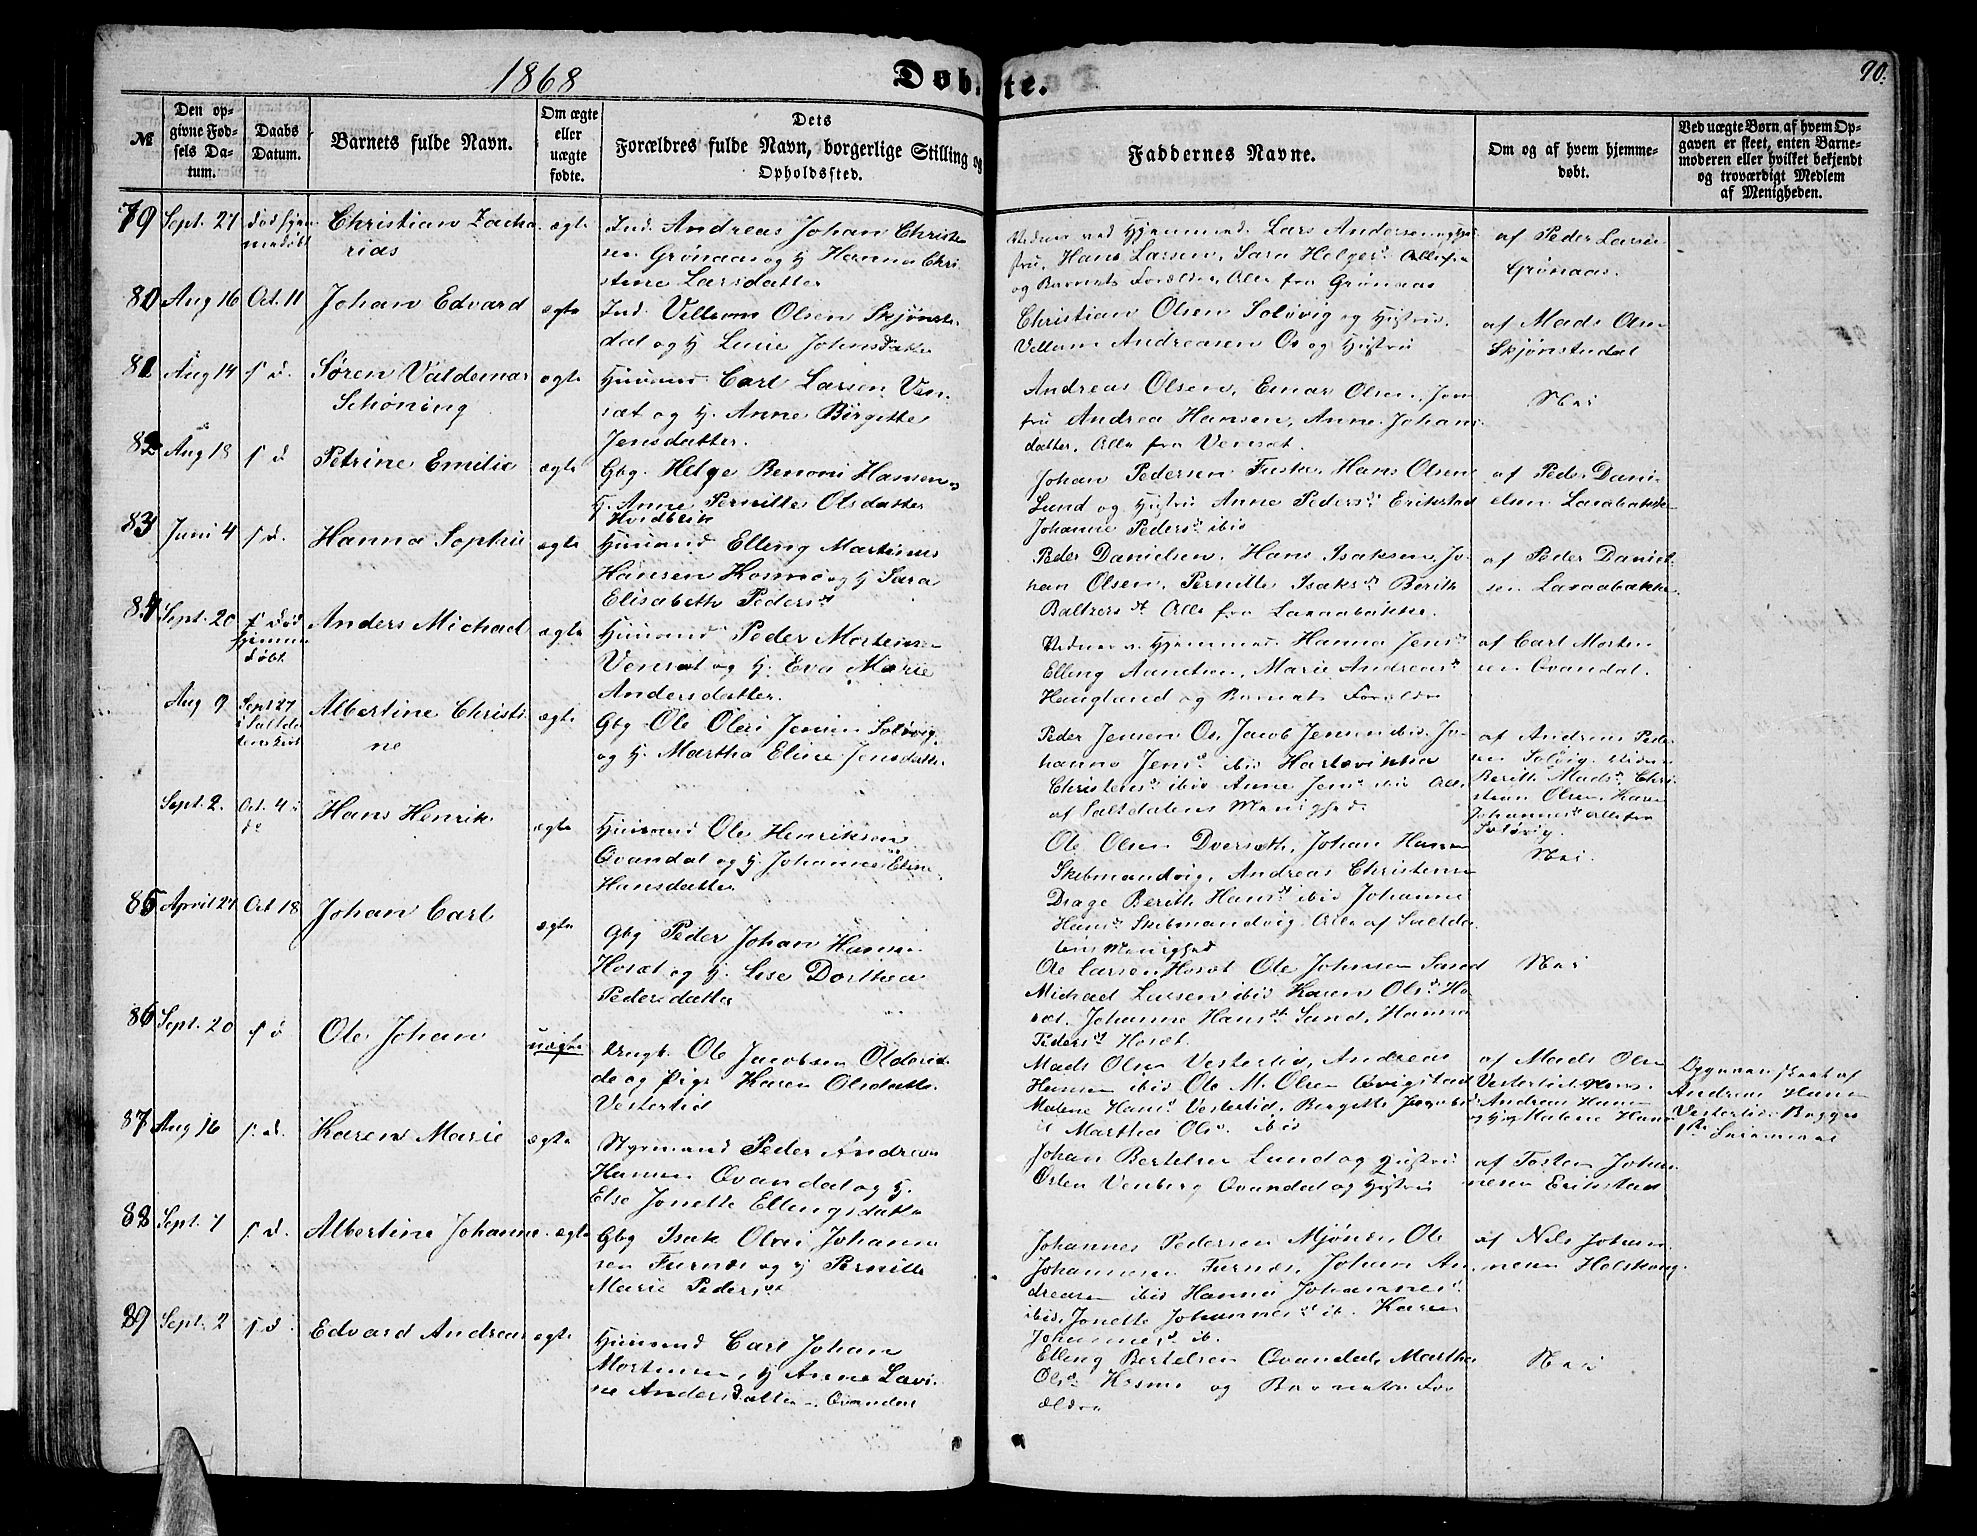 1868
Døbte.
90.
№
Den opgivne Fødsels Datum.
Daabs Datum.
Barnets fulde Navn.
Om ægte eller uægte fødte.
Dets Forældres fulde Navn, borgerlige Stilling og Opholdssted.
Faddernes Navne.
Om og af hvem hjemmedøbt.
Ved uægte Børn af hvem Opgaven er skeet, enten Barnemoderen eller hvilket bekjendt og troværdigt Medlem af Menigheden.
79 Sept. 21 Christian Zacha
rias
ægte
Ind. Andreas Johan Christen
sen Grønaas og H Hanna Chri
stine Larsdatter
Lars Andersen
Hans Larsen, Sara Helgesd. Alle fra
og Barnets Forældre, Alle fra Grønaas
af Peder Larsen
Grønaas.
80 Aug 16 Oct. 11 Johan Edvard ægte
Ind. Villum Olsen Skjønsten
dal og H Lucie Johnsdatter
Christian Olsen Soløvig og Hustru,
Villum Andreasen Os og Hustru
af Mads Olsen
Skjønstendal
81 Aug 14 s d. Søren Valdemar
Schøning
ægte
Huusmd Carl Larsen Ven
sæt og H. Anne Birgitte
Jensdatter.
Andreas Olsen, Einar Olsen, Jom
fru Andrea Hansen, Anne Johans
datter, Alle fra Vensæt.
Nei
82 Aug 18 s d Petrine Emilie ægte
Gbg. Helge Benoni Hansen
H. Anne Pernille Olsdatter
Hvidbrik
Johan Pedersen Fuske, Hans Olsen
Lund og Hustru Anne Pedersd Erikstad
Johanne Pedersd ibid
af Peder Dani
elsen Laxabakke
83 Juni 4 s d. Hanna Sophie ægte
Huusmd Elling Martinus
Hansen Kosmo og H Sara
Elisabeth Pedersdt
Peder Danielsen, Hans Isaksen, Jo
han Olsen, Pernille Isaksdt Berith
Baltzersdt Alle fra Laxaabakke.
af Peder Daniel
sen Laxaabakke
84 Sept. 20 s d død
Hjemme
døbt
Anders Michael ægte
Huusmd Peder Mortensen
Vensæt og H. Eva Marie
Andersdatter.
Hanna Jensd
Elling Amundsen, Marie Andreasdt
Haugland og Barnets Forældre
af Carl Morten
sen Qvandal.
Aug 9 Sept 27
i Saltda
lens Kirke
Albertine Christi
ne
ægte
Gbg. Ole Oleus Jensen Soløvig
og H. Martha Eline Jensdatter
Peder Jensen Os, Jacob Jensen ibid, Jo
hanna Jensd. ibid Hartvikka
Christensd ibid Anne Jensd ibid Alle
af Saltdalens Menighed.
af Andreas Peder
sen Soløvig
Berith Madsd, Chri
stian Olsen, Karen
Johannesd alle fra
Soløvig.
Sept. 2. Oct. 4 i
do
Hans Henrik ægte
Huusmd Ole Henriksen
Qvandal og H. Johanne Eline
Hansdatter
Ole Olsen Dverseth, Johan Hansen
Skibmandvig, Andreas Christensen
Drage Berith Hansdt ibid Johanne
Hansd Skibmandvig. Alle af Saltda
lens Menighed
Nei.
85 April 21 Oct. 18 Johan Carl ægte
Gbg Peder Johan Hansen
Hosæt og H. Lise Dorthea
Pedersdatter
Ole Larsen Hosæt Ole Johnsen Sand
Michael Larsen ibid Karen Olsd Ho
sæt. Johanne Hansdt Sand, Hanna
Pedersdt Hosæt.
Nei
86 Sept. 20 s d Ole Johan uægte
Ungk. Ole Jacobsen Oldereid
de og Pige Karen Olsdatter
Vestertid
Mads Olsen Vestertid, Andreas
Hansen ibid Ole M. Olsen Qvigstad
Malene Hansd Vestertid, Birgitte Jacobsd
Martha Olsd. ibid
af Mads Olsen
Vestertid
Andreas Hansen
og Hust Malene Hans
Opgaven skeet af
Andreas Hansen
Vestertid. Begges
1ste
87 Aug 16 s. d. Karen Marie ægte
Styrmand Peder Andreas
Hansen Qvandal og H.
Else Jonette Ellingsdatter
Johan Bertelsen Lund og Hustru
Osten Venberg Qvandal og Hustru
af Tosten Johan
nesen Erikstad
88 Sept. 7 s. d. Albertine Johanne ægte
Gbg Isak Olai Johanne
sen Furnes og H Pernille
Marie Pedersdt
Johannes Pedersen Mjønes, Ole
Johannesen Furnes, Johan An
dreasen ibid Hanna Johannesd.
ibid, Jonette Johannesdt ib. Karen
Johannesd. ib.
af Nils Johan
nesen Holskoug.
89 Sept. 2 s d. Edvard Andreas ægte
Huusmd Carl Johan
Mortensen, H Anne Lovi
ne Andersdatter Qvandal
Elling Bertelsen Qvandal, Martha
Olsd Kosmo og Barnets For
ældre
Nei